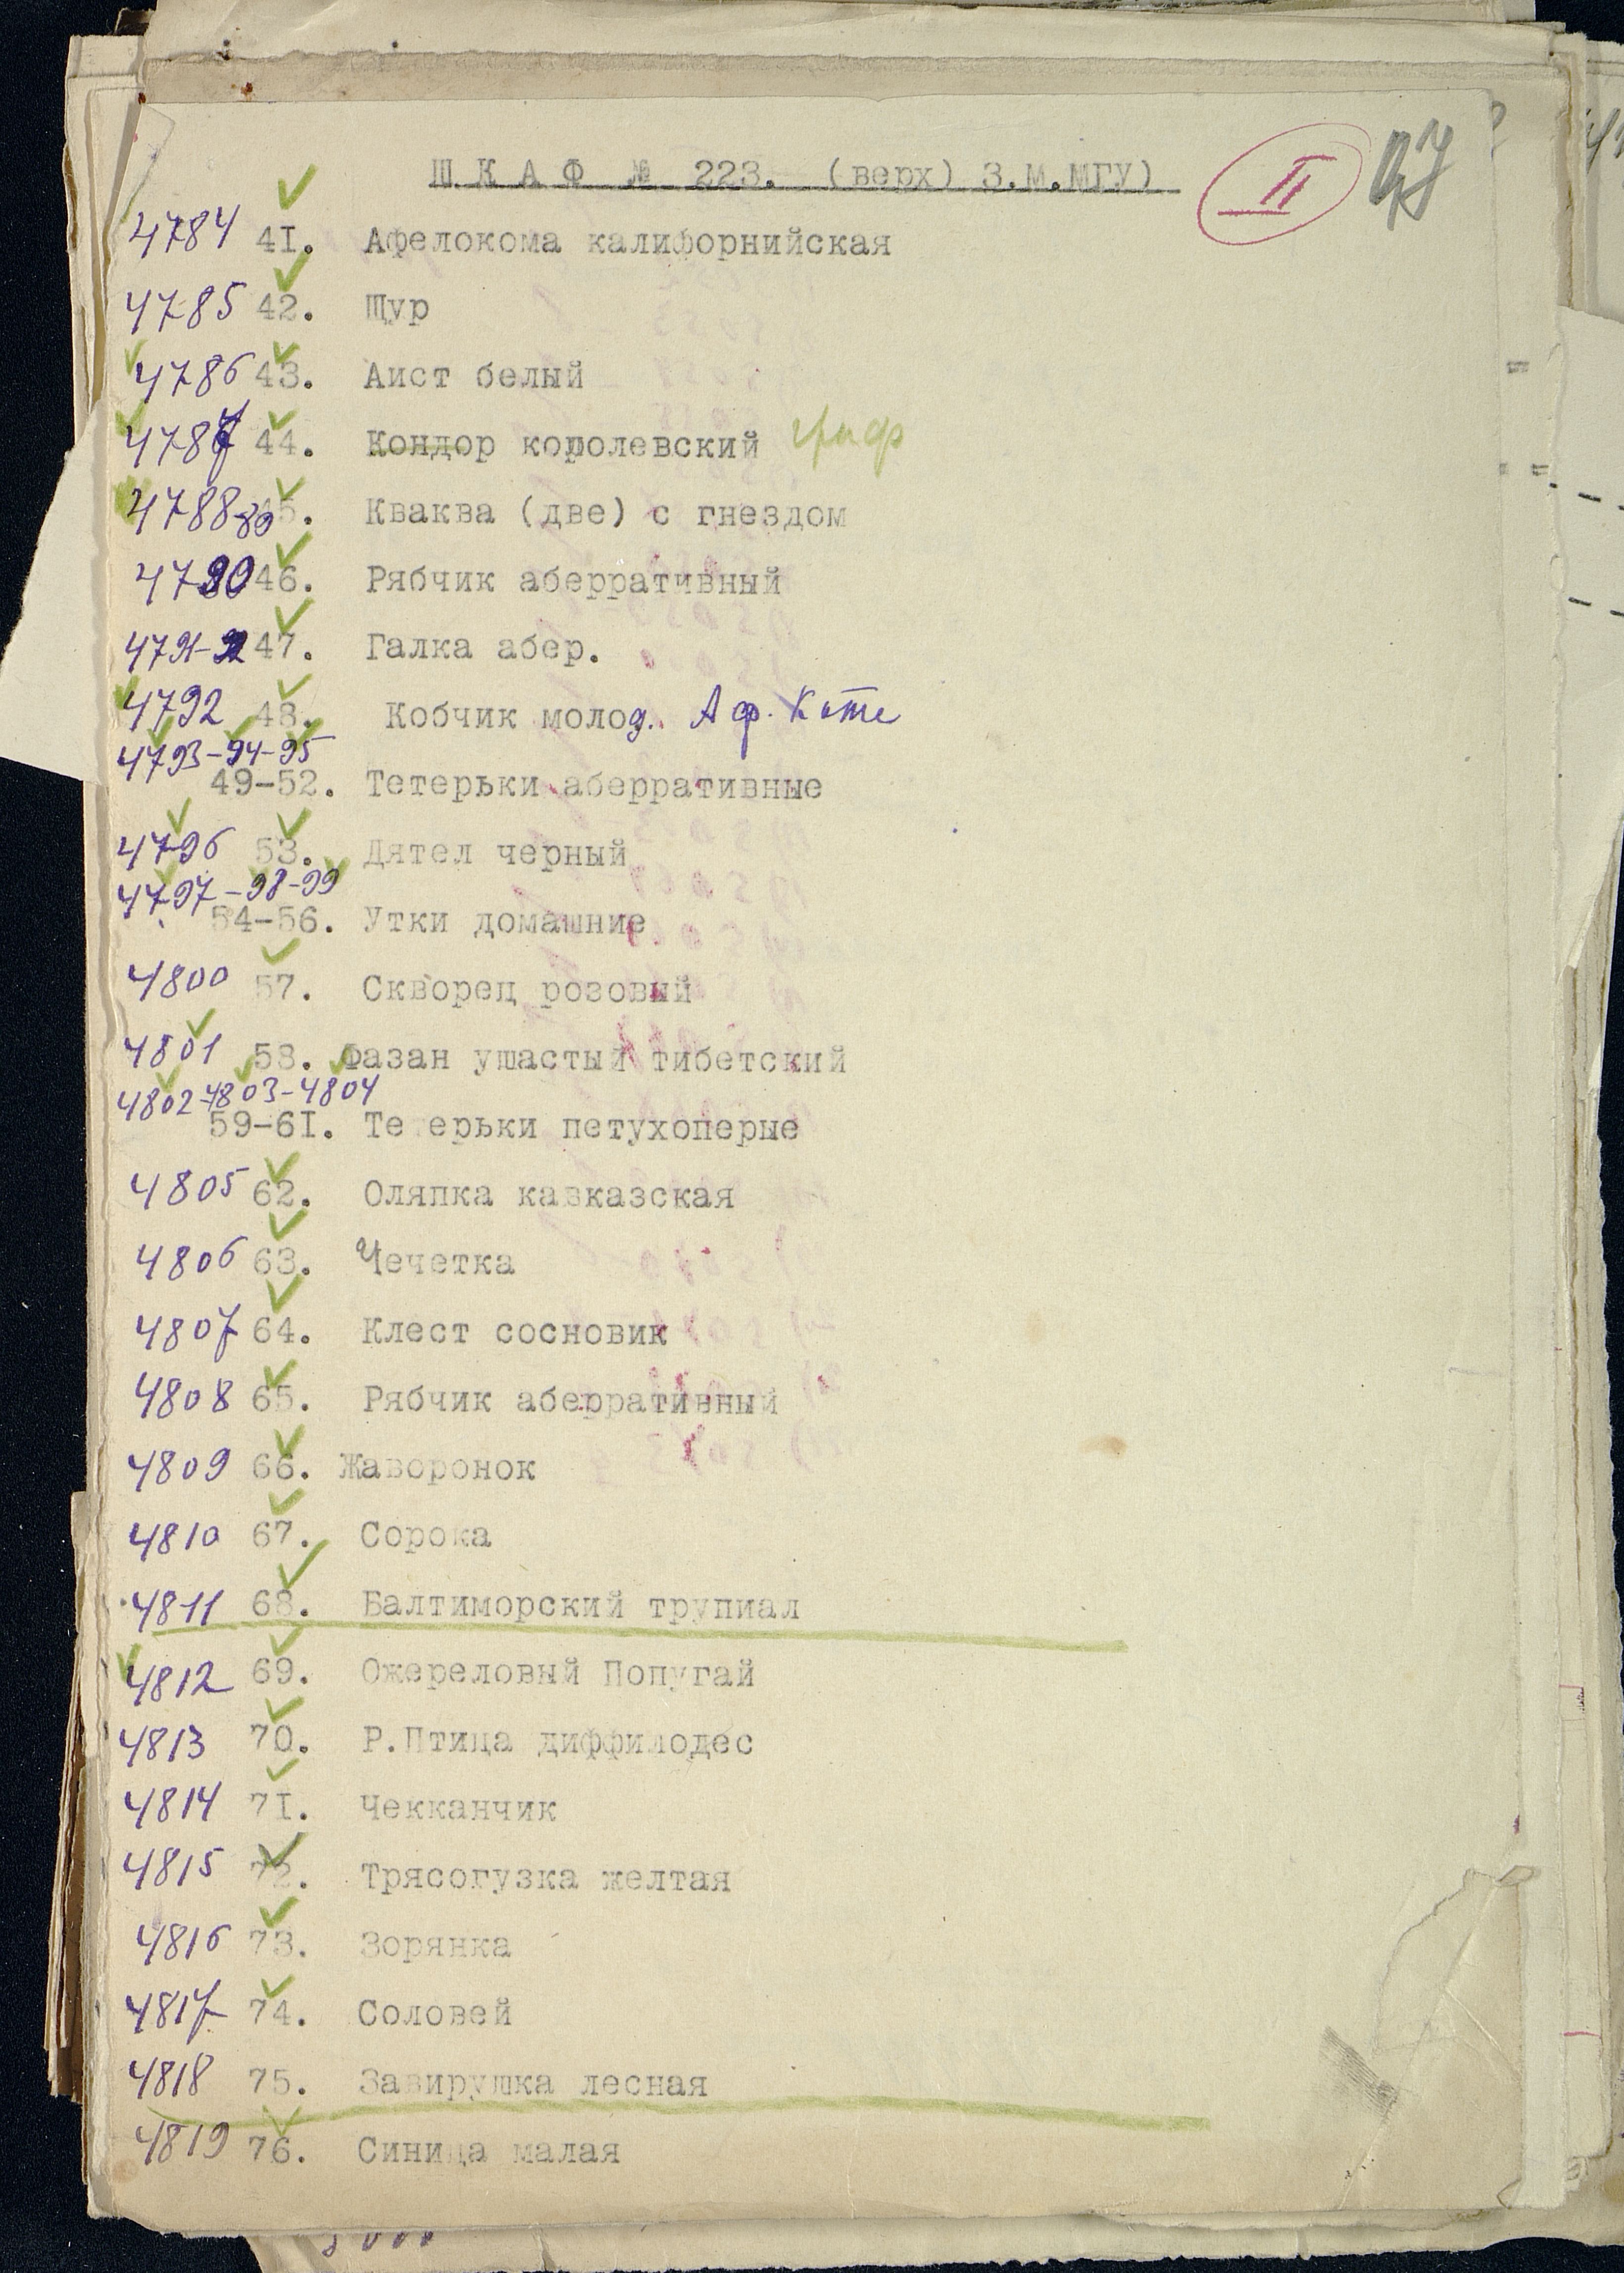 ШКАФ № 223. (верх) З.М.МГУ)
II 27
4784 4I. Афелокома калифорнийская
4785 42. Щур
4786 43. Аист белый
4787 44. Кондор королевский гриф
4788-89 45. Кваква (две) с гнездом
4790 46. Рябчик аберративный
4791- 47. Галка абер.
4792 48. Кобчик молод. Аф. Котс
4793-94-95
49-52. Тетерьки аберративные
4796 53. Дятел черный
4797-98-99
54-56. Утки домашние
4800 57. Скворец розовый
4801 58. Фазан ушастый тибетский
4802-4803-4804
59-6I. Тетерьки петухоперые
4805 62. Оляпка кавказская
4806 63. Чечетка
4807 64. Клест сосновик
4808 65. Рябчик аберративный
4809 66. Жаворонок
4810 67. Сорока
4811 68. Балтиморский трупиал
4812 69. Ожереловый Попугай
4813 70. Р.Птица диффилодес
4814 7I. Чекканчик
4815 72. Трясогузка желтая
4816 73. Зорянка
4817 74. Соловей
4818 75. Завирушка лесная
4819 76. Синица малая